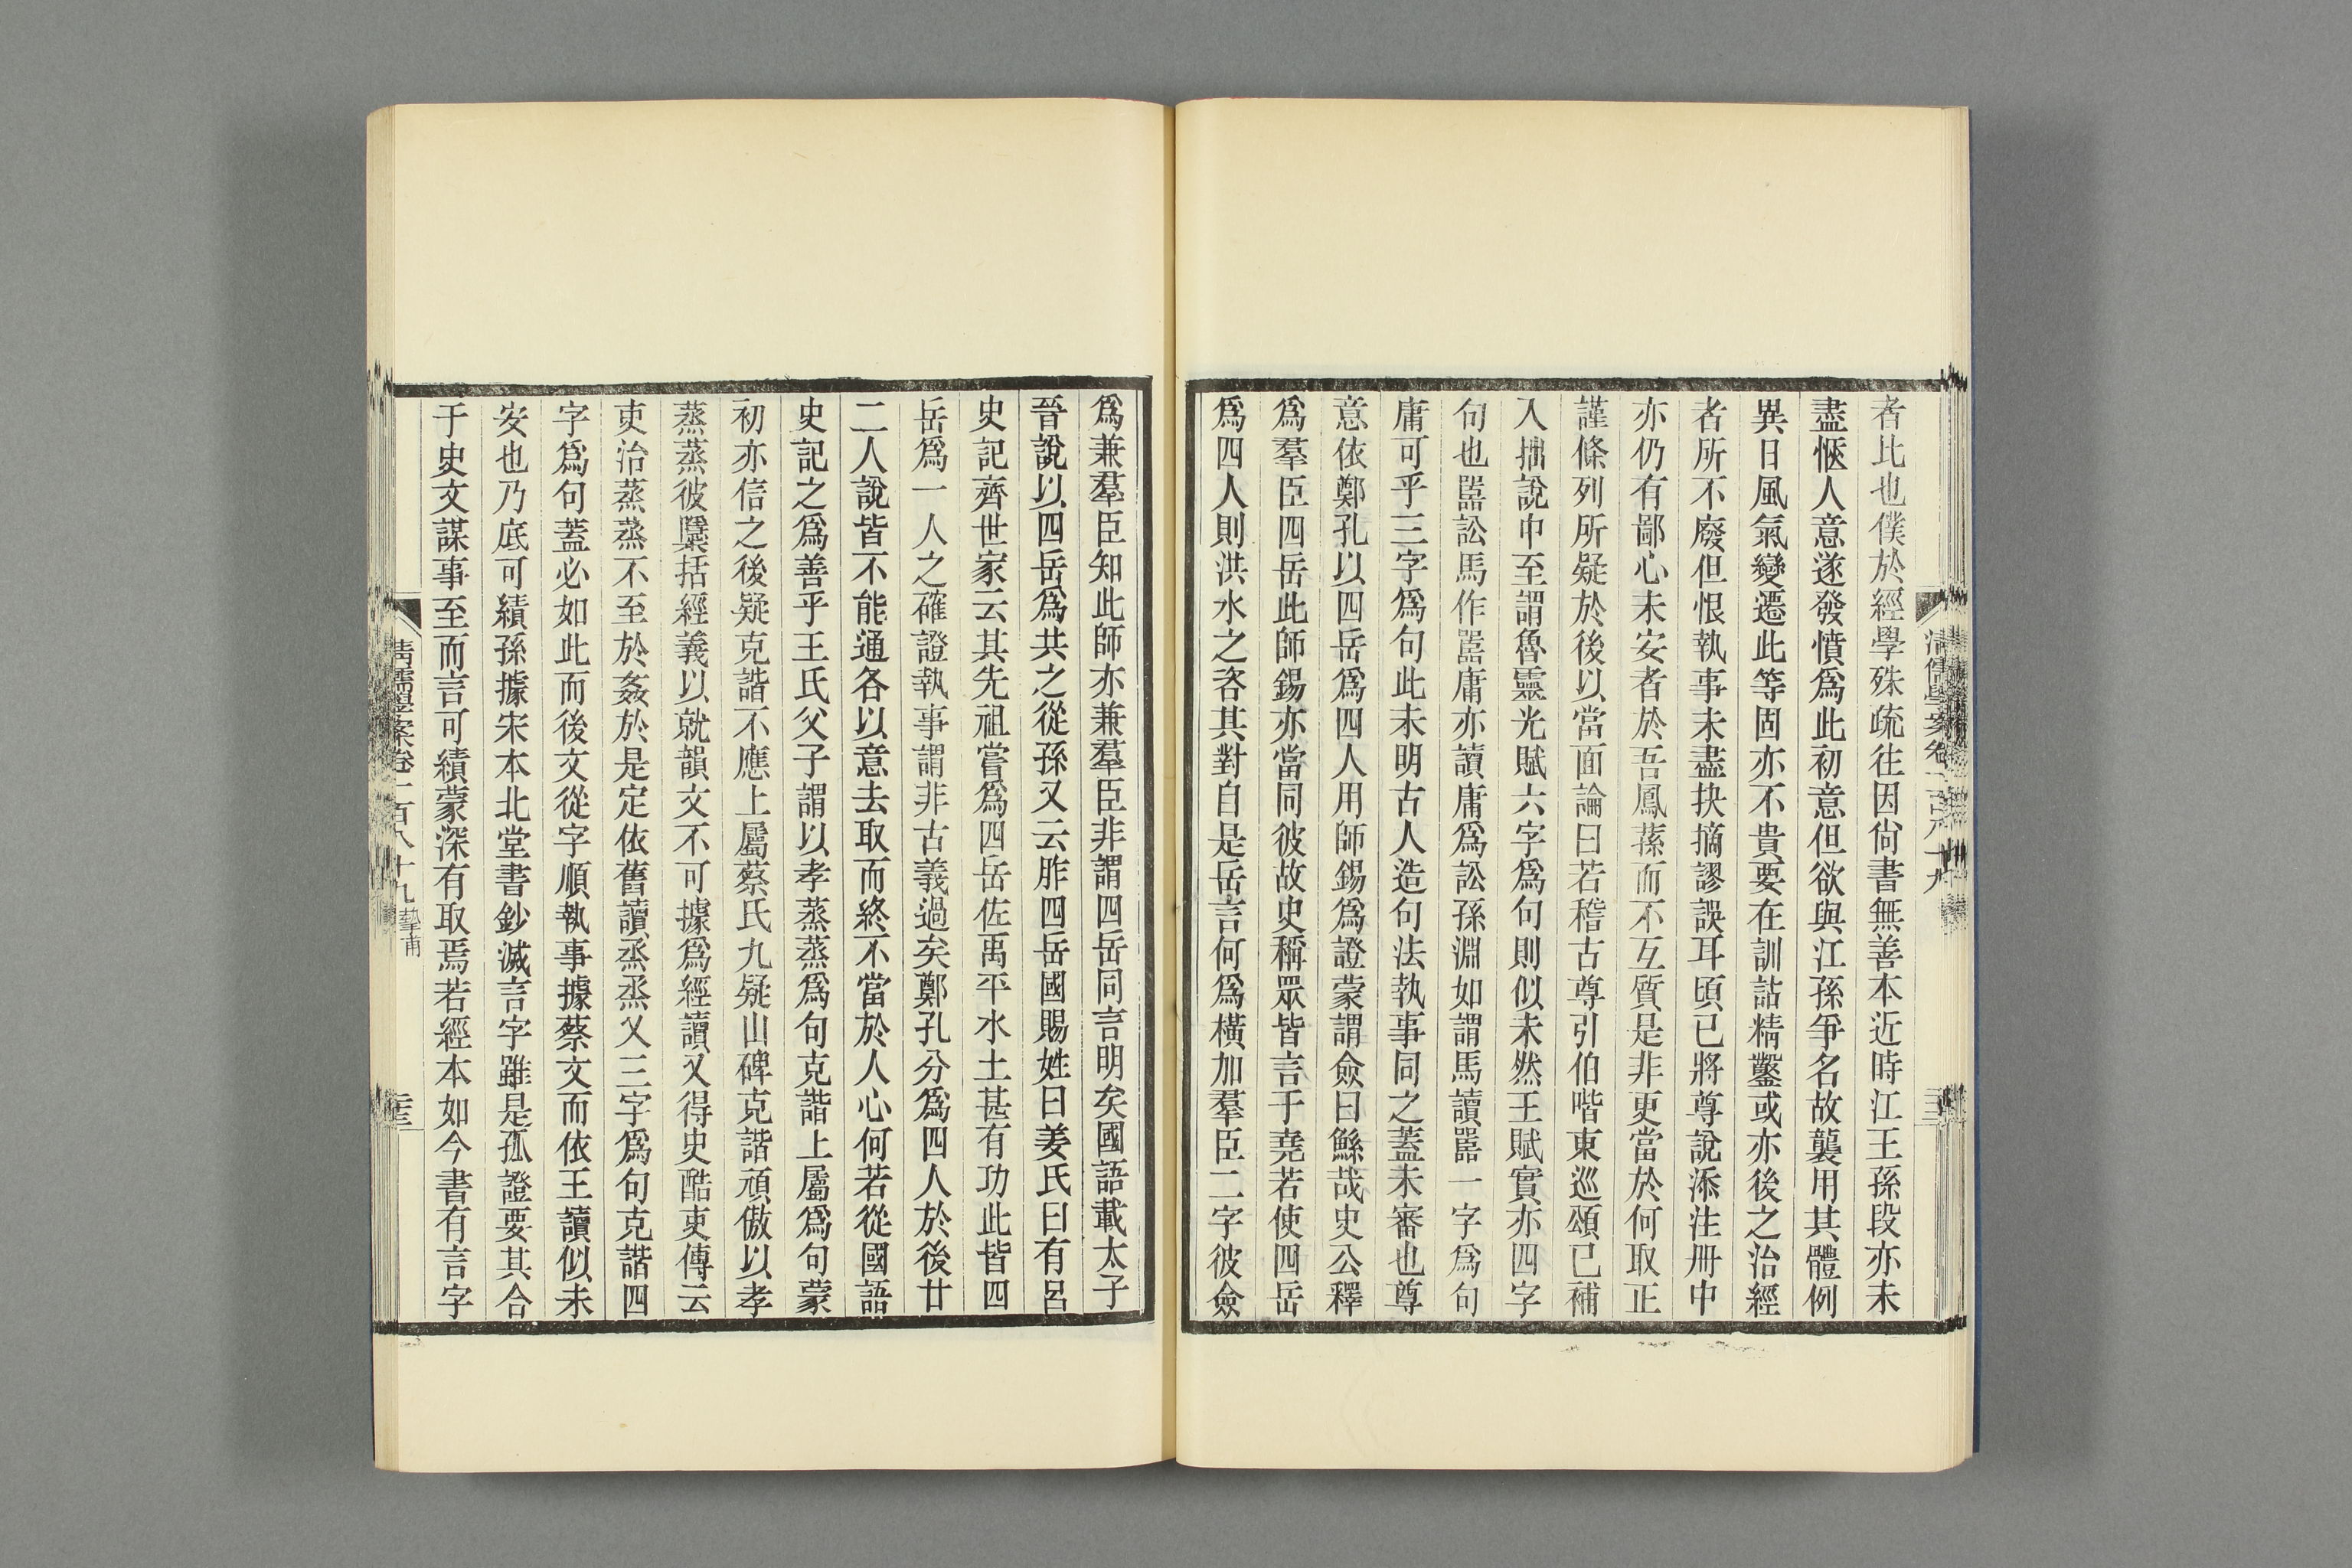 者比也僕於經學殊疏往因尙書無善本近時江王孫段亦未
盡愜人意遂發憤爲此初意但欲與江孫爭名故襲用其體例
異日風氣變遷此等固亦不貴要在訓詁精鑿或亦後之治經
者所不廢但恨執事未盡抉摘謬誤耳頃已將尊說添注冊中
亦仍有鄙心未安者於吾鳳蓀而不互質是非更當於何取正
謹條列所疑於後以當面論曰若稽古尊引伯喈東巡頌已補
入拙說中至謂魯靈光賦六字爲句則似未然王賦實亦四字
句也嚚訟馬作嚚庸亦讀庸爲訟孫淵如謂馬讀嚚一字爲句
庸可乎三字爲句此未明古人造句法執事同之蓋未審也尊
意依鄭孔以四岳爲四人用師錫爲證蒙謂僉曰鯀哉史公釋
爲羣臣四岳此師錫亦當同彼故史稱眾皆言于堯若使四岳
爲四人則洪水之咨其對自是岳言何爲橫加羣臣二字彼僉
爲兼羣臣知此師亦兼羣臣非謂四岳同言明矣國語載太子
晉說以四岳爲共之從孫又云胙四岳國賜姓曰姜氏曰有呂
史記齊世家云其先祖嘗爲四岳佐禹平水土甚有功此皆四
岳爲一人之確證執事謂非古義過矣鄭孔分爲四人於後廿
二人說皆不能通各以意去取而終不當於人心何若從國語
史記之爲善乎王氏父子謂以孝蒸蒸爲句克諧上屬爲句蒙
初亦信之後疑克諧不應上屬蔡氏九疑山碑克諧頑傲以孝
蒸蒸彼檃括經義以就韻文不可據爲經讀又得史酷吏傳云
吏治蒸蒸不至於姦於是定依舊讀烝烝乂三字爲句克諧四
字爲句蓋必如此而後文從字順執事據蔡文而依王讀似未
安也乃底可績孫據宋本北堂書鈔滅言字雖是孤證要其合
于史文謀事至而言可績蒙深有取焉若經本如今書有言字
清儒學案卷一百八十九 摯甫